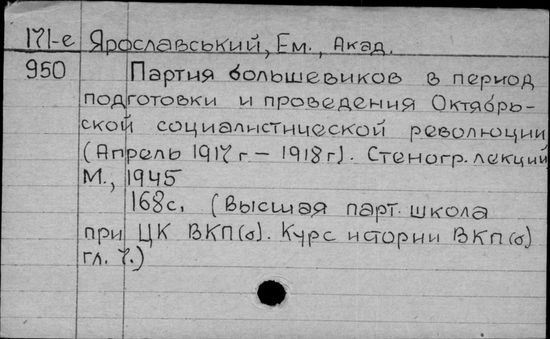 171-е Ярославський, Ем., Акад.
950 Партия большевиков в период
подготовки и проведения Октябрь-
ской социалистической революции
(Апрель 1917 г – 1918 г). Стеногр. лекций
М., 1945
168 с. (Высшая парт. школа
при ЦК ВКП(б). Курс истории ВКП(б)
гл. 7.)